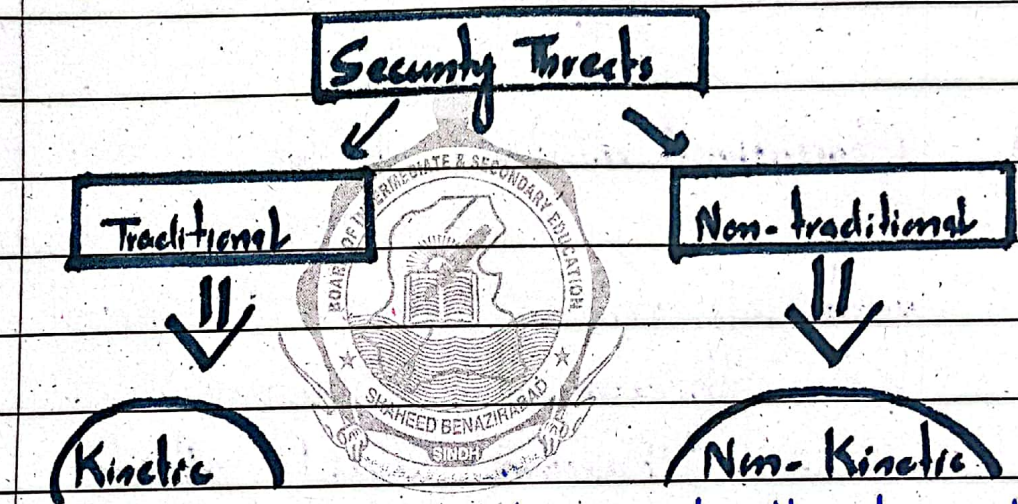 Security Threats
Traditional
Non-traditional
BOARD OF INTERMEDIATE & SECONDARY EDUCATION
SHAHEED BENAZIRABAD
SINDH
Kinetic
Non-Kinetic